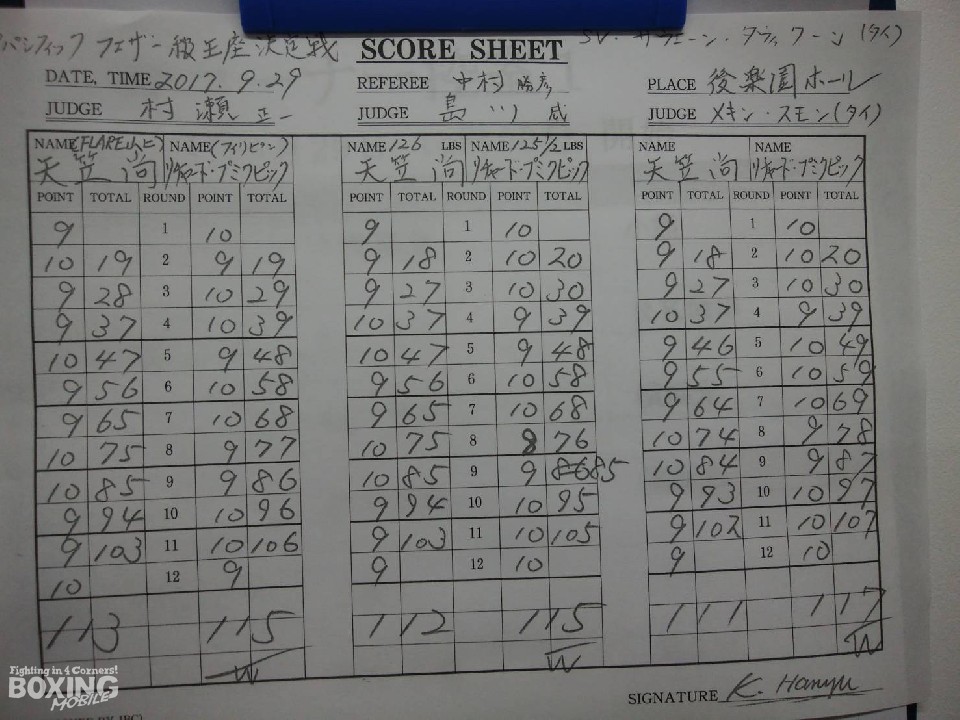 パシフィック フェザー級王座決定戦 SCORE SHEET SV. サラェーン・ダラィワーン (タイ)
DATE, TIME 2017. 9. 29 REFEREE 中村勝彦 PLACE 後楽園ホール
JUDGE 村瀬正一 JUDGE 島川威 JUDGE メキン・スモン(タイ)
NAME (FLARE山上) NAME (フィリピン) NAME 126 LBS NAME 125 1/2 LBS NAME NAME
天笠尚 リチャード・プミクピック 天笠尚 リチャード・プミクピック 天笠尚 リチャード・プミクピック
POINT TOTAL ROUND POINT TOTAL POINT TOTAL ROUND POINT TOTAL POINT TOTAL ROUND POINT TOTAL
9 1 10 9 1 10 9 1 10
10 19 2 9 19 9 18 2 10 20 9 18 2 10 20
9 28 3 10 29 9 27 3 10 30 9 27 3 10 30
9 37 4 10 39 10 37 4 9 39 10 37 4 9 39
10 47 5 9 48 10 47 5 9 48 9 46 5 10 49
9 56 6 10 58 9 56 6 10 58 9 55 6 10 59
9 65 7 10 68 9 65 7 10 68 9 64 7 10 69
10 75 8 9 77 10 75 8 8 76 10 74 8 9 78
10 85 9 9 86 10 85 9 9 85 10 84 9 9 87
9 94 10 10 96 9 94 10 10 95 9 93 10 10 97
9 103 11 10 106 9 103 11 10 105 9 102 11 10 107
10 12 9 9 12 10 9 12 10
113 115 112 115 111 117
W W W
Fighting in 4 Corners!
BOXING
MOBILE
SIGNATURE K. Hanyu